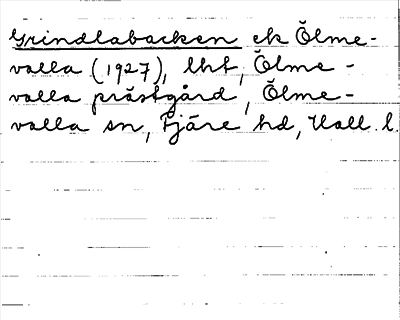 Grindlabacken ek Ölme-
valla (1927), lht, Ölme-
valla prästgård, Ölme-
valla sn, Fjäre hd, Hall. l.